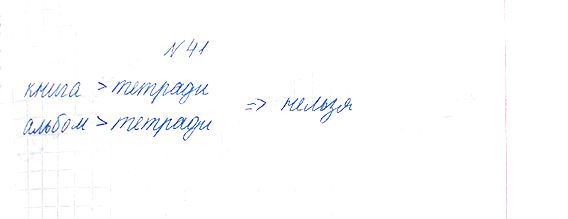 N 41
книга > тетради
альбом > тетради
=> нельзя